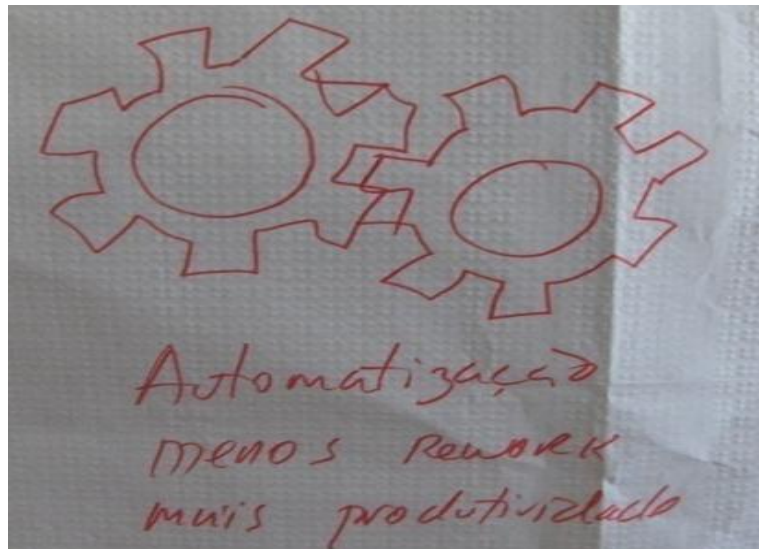 Automatização
menos Rework
mais produtividade